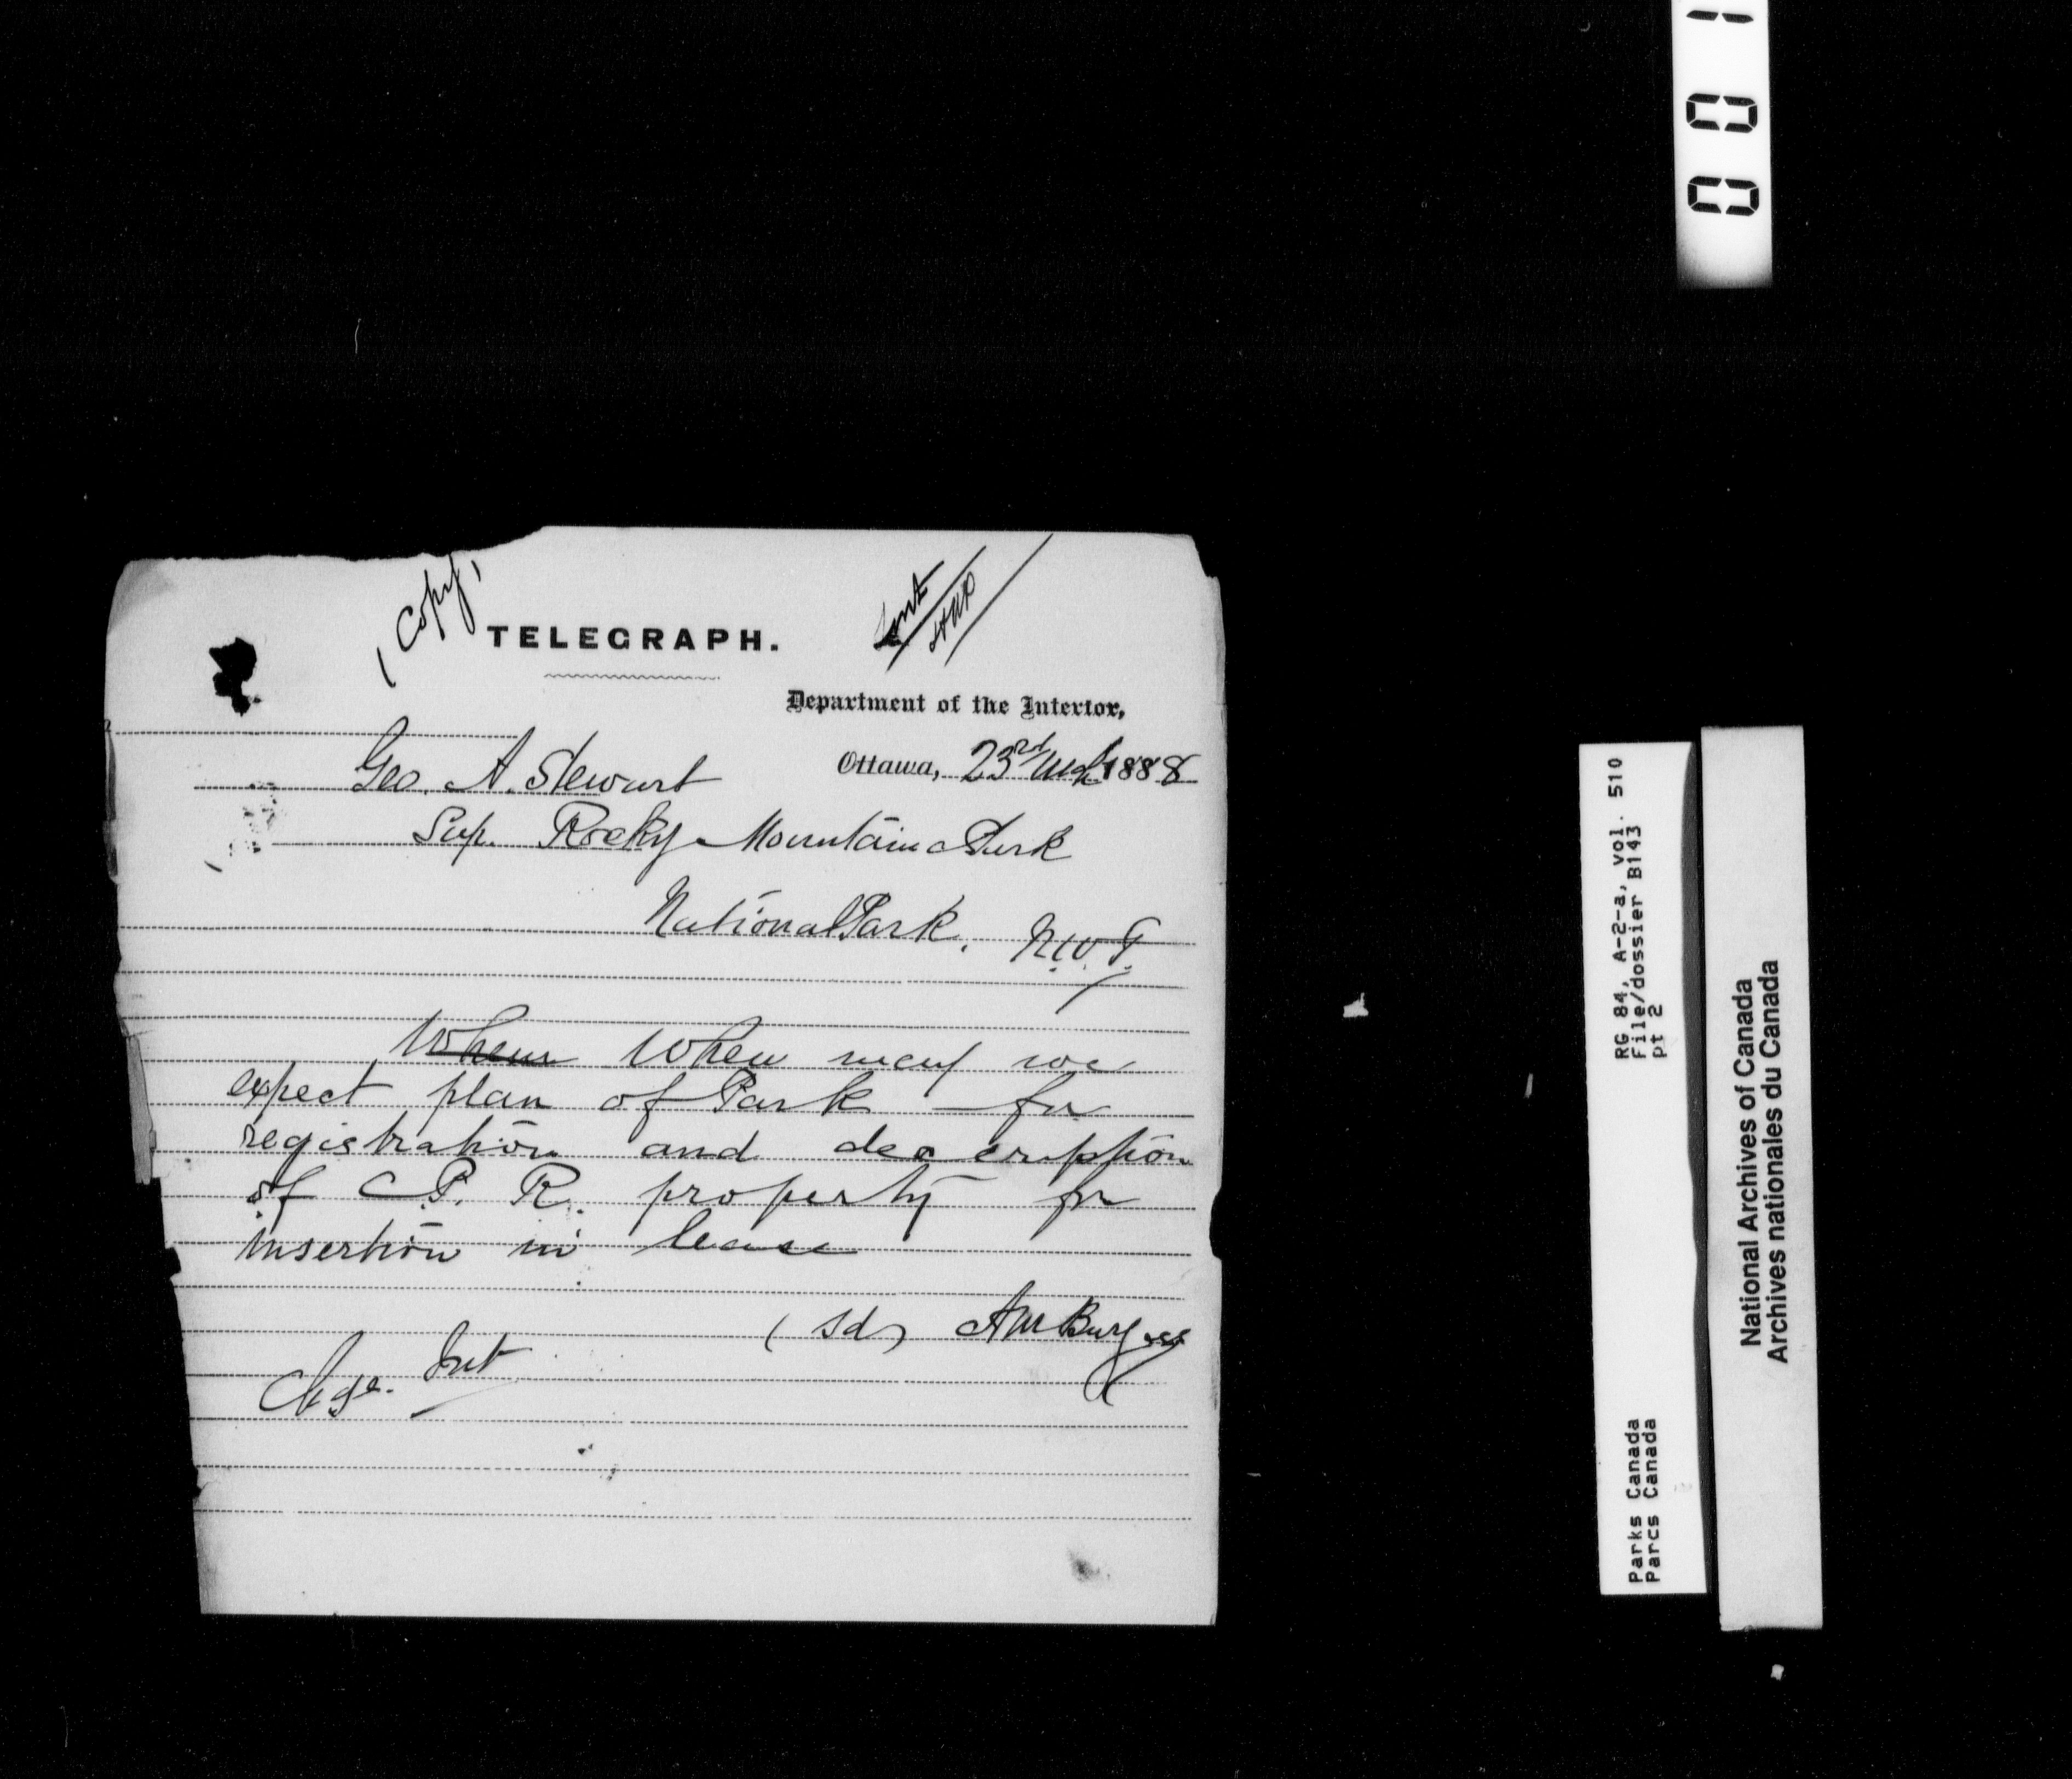 (Copy,
TELEGRAPH.
Sent
Department of the Interior,
Ottawa, 23rd Mch 1888
Geo. A. Stewart
Sup. Rocky Mountain Park
National Park. N.W.T.
When When may we
expect plan of Park for
registration and description
of C.P.R. property for
insertion in lease
(sd) AM Burgess
Chge. Int
001
RG 84, A-2-a, vol. 510
File/dossier B143
pt 2
Parks Canada
Parcs Canada
National Archives of Canada
Archives nationales du Canada